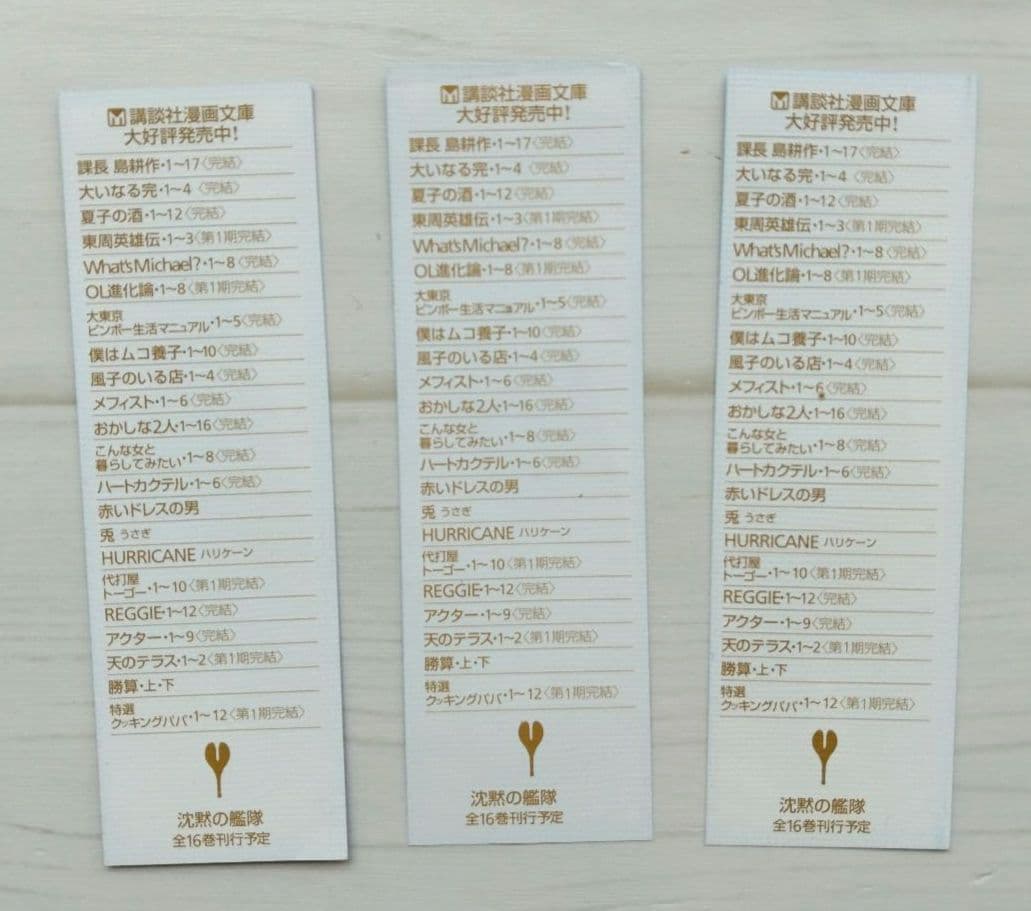 講談社漫画文庫
大好評発売中!
課長 島耕作・1~17〈完結〉
大いなる完・1~4〈完結〉
夏子の酒・1~12〈完結〉
東周英雄伝・1~3〈第1期完結〉
What's Michael?・1~8〈完結〉
OL進化論・1~8〈第1期完結〉
大東京
ビンボー生活マニュアル・1~5〈完結〉
僕はムコ養子・1~10〈完結〉
風子のいる店・1~4〈完結〉
メフィスト・1~6〈完結〉
おかしな2人・1~16〈完結〉
こんな女と
暮らしてみたい・1~8〈完結〉
ハートカクテル・1~6〈完結〉
赤いドレスの男
兎 うさぎ
HURRICANE ハリケーン
代打屋
トーゴー・1~10〈第1期完結〉
REGGIE・1~12〈完結〉
アクター・1~9〈完結〉
天のテラス・1~2〈第1期完結〉
勝算・上・下
特選
クッキングパパ・1~12〈第1期完結〉
沈黙の艦隊
全16巻刊行予定
講談社漫画文庫
大好評発売中!
課長 島耕作・1~17〈完結〉
大いなる完・1~4〈完結〉
夏子の酒・1~12〈完結〉
東周英雄伝・1~3〈第1期完結〉
What's Michael?・1~8〈完結〉
OL進化論・1~8〈第1期完結〉
大東京
ビンボー生活マニュアル・1~5〈完結〉
僕はムコ養子・1~10〈完結〉
風子のいる店・1~4〈完結〉
メフィスト・1~6〈完結〉
おかしな2人・1~16〈完結〉
こんな女と
暮らしてみたい・1~8〈完結〉
ハートカクテル・1~6〈完結〉
赤いドレスの男
兎 うさぎ
HURRICANE ハリケーン
代打屋
トーゴー・1~10〈第1期完結〉
REGGIE・1~12〈完結〉
アクター・1~9〈完結〉
天のテラス・1~2〈第1期完結〉
勝算・上・下
特選
クッキングパパ・1~12〈第1期完結〉
沈黙の艦隊
全16巻刊行予定
講談社漫画文庫
大好評発売中!
課長 島耕作・1~17〈完結〉
大いなる完・1~4〈完結〉
夏子の酒・1~12〈完結〉
東周英雄伝・1~3〈第1期完結〉
What's Michael?・1~8〈完結〉
OL進化論・1~8〈第1期完結〉
大東京
ビンボー生活マニュアル・1~5〈完結〉
僕はムコ養子・1~10〈完結〉
風子のいる店・1~4〈完結〉
メフィスト・1~6〈完結〉
おかしな2人・1~16〈完結〉
こんな女と
暮らしてみたい・1~8〈完結〉
ハートカクテル・1~6〈完結〉
赤いドレスの男
兎 うさぎ
HURRICANE ハリケーン
代打屋
トーゴー・1~10〈第1期完結〉
REGGIE・1~12〈完結〉
アクター・1~9〈完結〉
天のテラス・1~2〈第1期完結〉
勝算・上・下
特選
クッキングパパ・1~12〈第1期完結〉
沈黙の艦隊
全16巻刊行予定